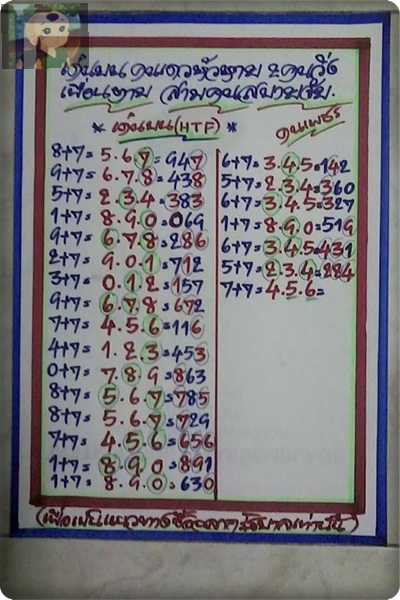 เด่นบน
เพื่อนตาม สามคนสบายจัง.
* เด่นบน(HTF) *
คนเพชร
8+7= 5.6.7=947
9+7= 6.7.8=438
5+7= 2.3.4=383
1+7= 8.9.0=069
9+7= 6.7.8=286
2+7= 9.0.1=712
3+7= 0.1.2=157
9+7= 6.7.8=672
7+7= 4.5.6=116
4+7= 1.2.3=453
0+7= 7.8.9=863
8+7= 5.6.7=785
8+7= 5.6.7=729
7+7= 4.5.6=656
1+7= 8.9.0=891
1+7= 8.9.0=630
6+7= 3.4.5=142
5+7= 2.3.4=360
6+7= 3.4.5=327
1+7= 8.9.0=519
6+7= 3.4.5=431
5+7= 2.3.4=224
7+7= 4.5.6=
(เพื่อเป็นแนวทางซื้อสลากรัฐบาลเท่านั้น)